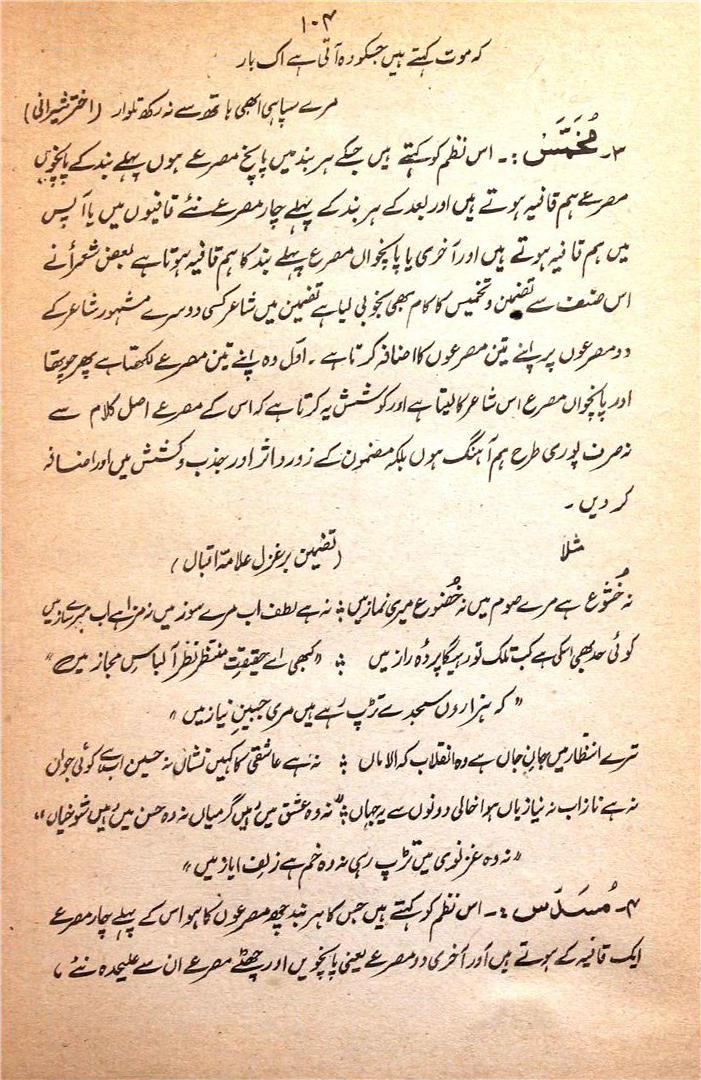 ۱۰۴
کہ موت کہتے ہیں جسکو وہ آتی ہے اک بار
مرے سپاہی ابھی ہاتھ سے نہ رکھ تلوار (اختر شیرانی)
۳۔ مُخَمَّسْ :۔ اس نظم کو کہتے ہیں جسکے ہر بند میں پانچ مصرعے ہوں پہلے بند کے پانچویں
مصرعے ہم قافیہ ہوتے ہیں اور بعد کے ہر بند کے پہلے چار مصرعے نئے قافیوں میں یا آپس
میں ہم قافیہ ہوتے ہیں اور آخری یا پانچواں مصرع پہلے بند کا ہم قافیہ ہوتا ہے بعض شعرأ نے
اس صنف سے تضمین و تخمیس کا کام بھی بخوبی لیا ہے تضمین میں شاعر کسی دوسرے مشہور شاعر کے
دو مصرعوں پر اپنے تین مصرعوں کا اضافہ کرتا ہے ۔ اوّل وہ اپنے تین مصرعے لکھتا ہے پھر چوتھا
اور پانچواں مصرع اس شاعر کا لیتا ہے اور کوشش یہ کرتا ہے کہ اس کے مصرعے اصل کلام سے
نہ صرف پوری طرح ہم آہنگ ہوں بلکہ مضمون کے زور و اثر اور جذب و کشش میں اور اضافہ
کر دیں ۔
مثلا (تضمین بر غزل علامہ اقبال)
نہ خُشُوع ہے مرے صوم میں نہ خُضُوع میری نماز میں ؛ نہ ہے لطف اب مرے سوز میں نہ مزا ہے اب مرے ساز میں
کوئی حد بھی اسکی ہے کب تلک تو رہیگا پردۂ راز میں ؛ "کبھی اے حقیقتِ منتظر نظر آ لباسِ مجاز میں"
"کہ ہزاروں سجدے تڑپ رہے ہیں مری جبینِ نیاز میں"
ترے انتظار میں جانِ جاں ہے وہ انقلاب کہ الاماں ؛ نہ ہے عاشقی کا کہیں نشاں نہ حسین اب ہے کوئی جواں
نہ ہے ناز اب نہ نیازیاں ہوا خالی دونوں سے یہ جہاں ؛ "نہ وہ عشق میں رہیں گرمیاں نہ وہ حسن میں رہیں شوخیاں"
"نہ وہ غزنوی میں تڑپ رہی نہ وہ خم ہے زلف ایاز میں"
۴۔ مُسَدَّس :۔ اس نظم کو کہتے ہیں جس کا ہر بند چھ مصرعوں کا ہو اس کے پہلے چار مصرعے
ایک قافیہ کے ہوتے ہیں اور آخری دو مصرعے یعنی پانچویں اور چھٹے مصرعے ان سے علیحدہ نئے